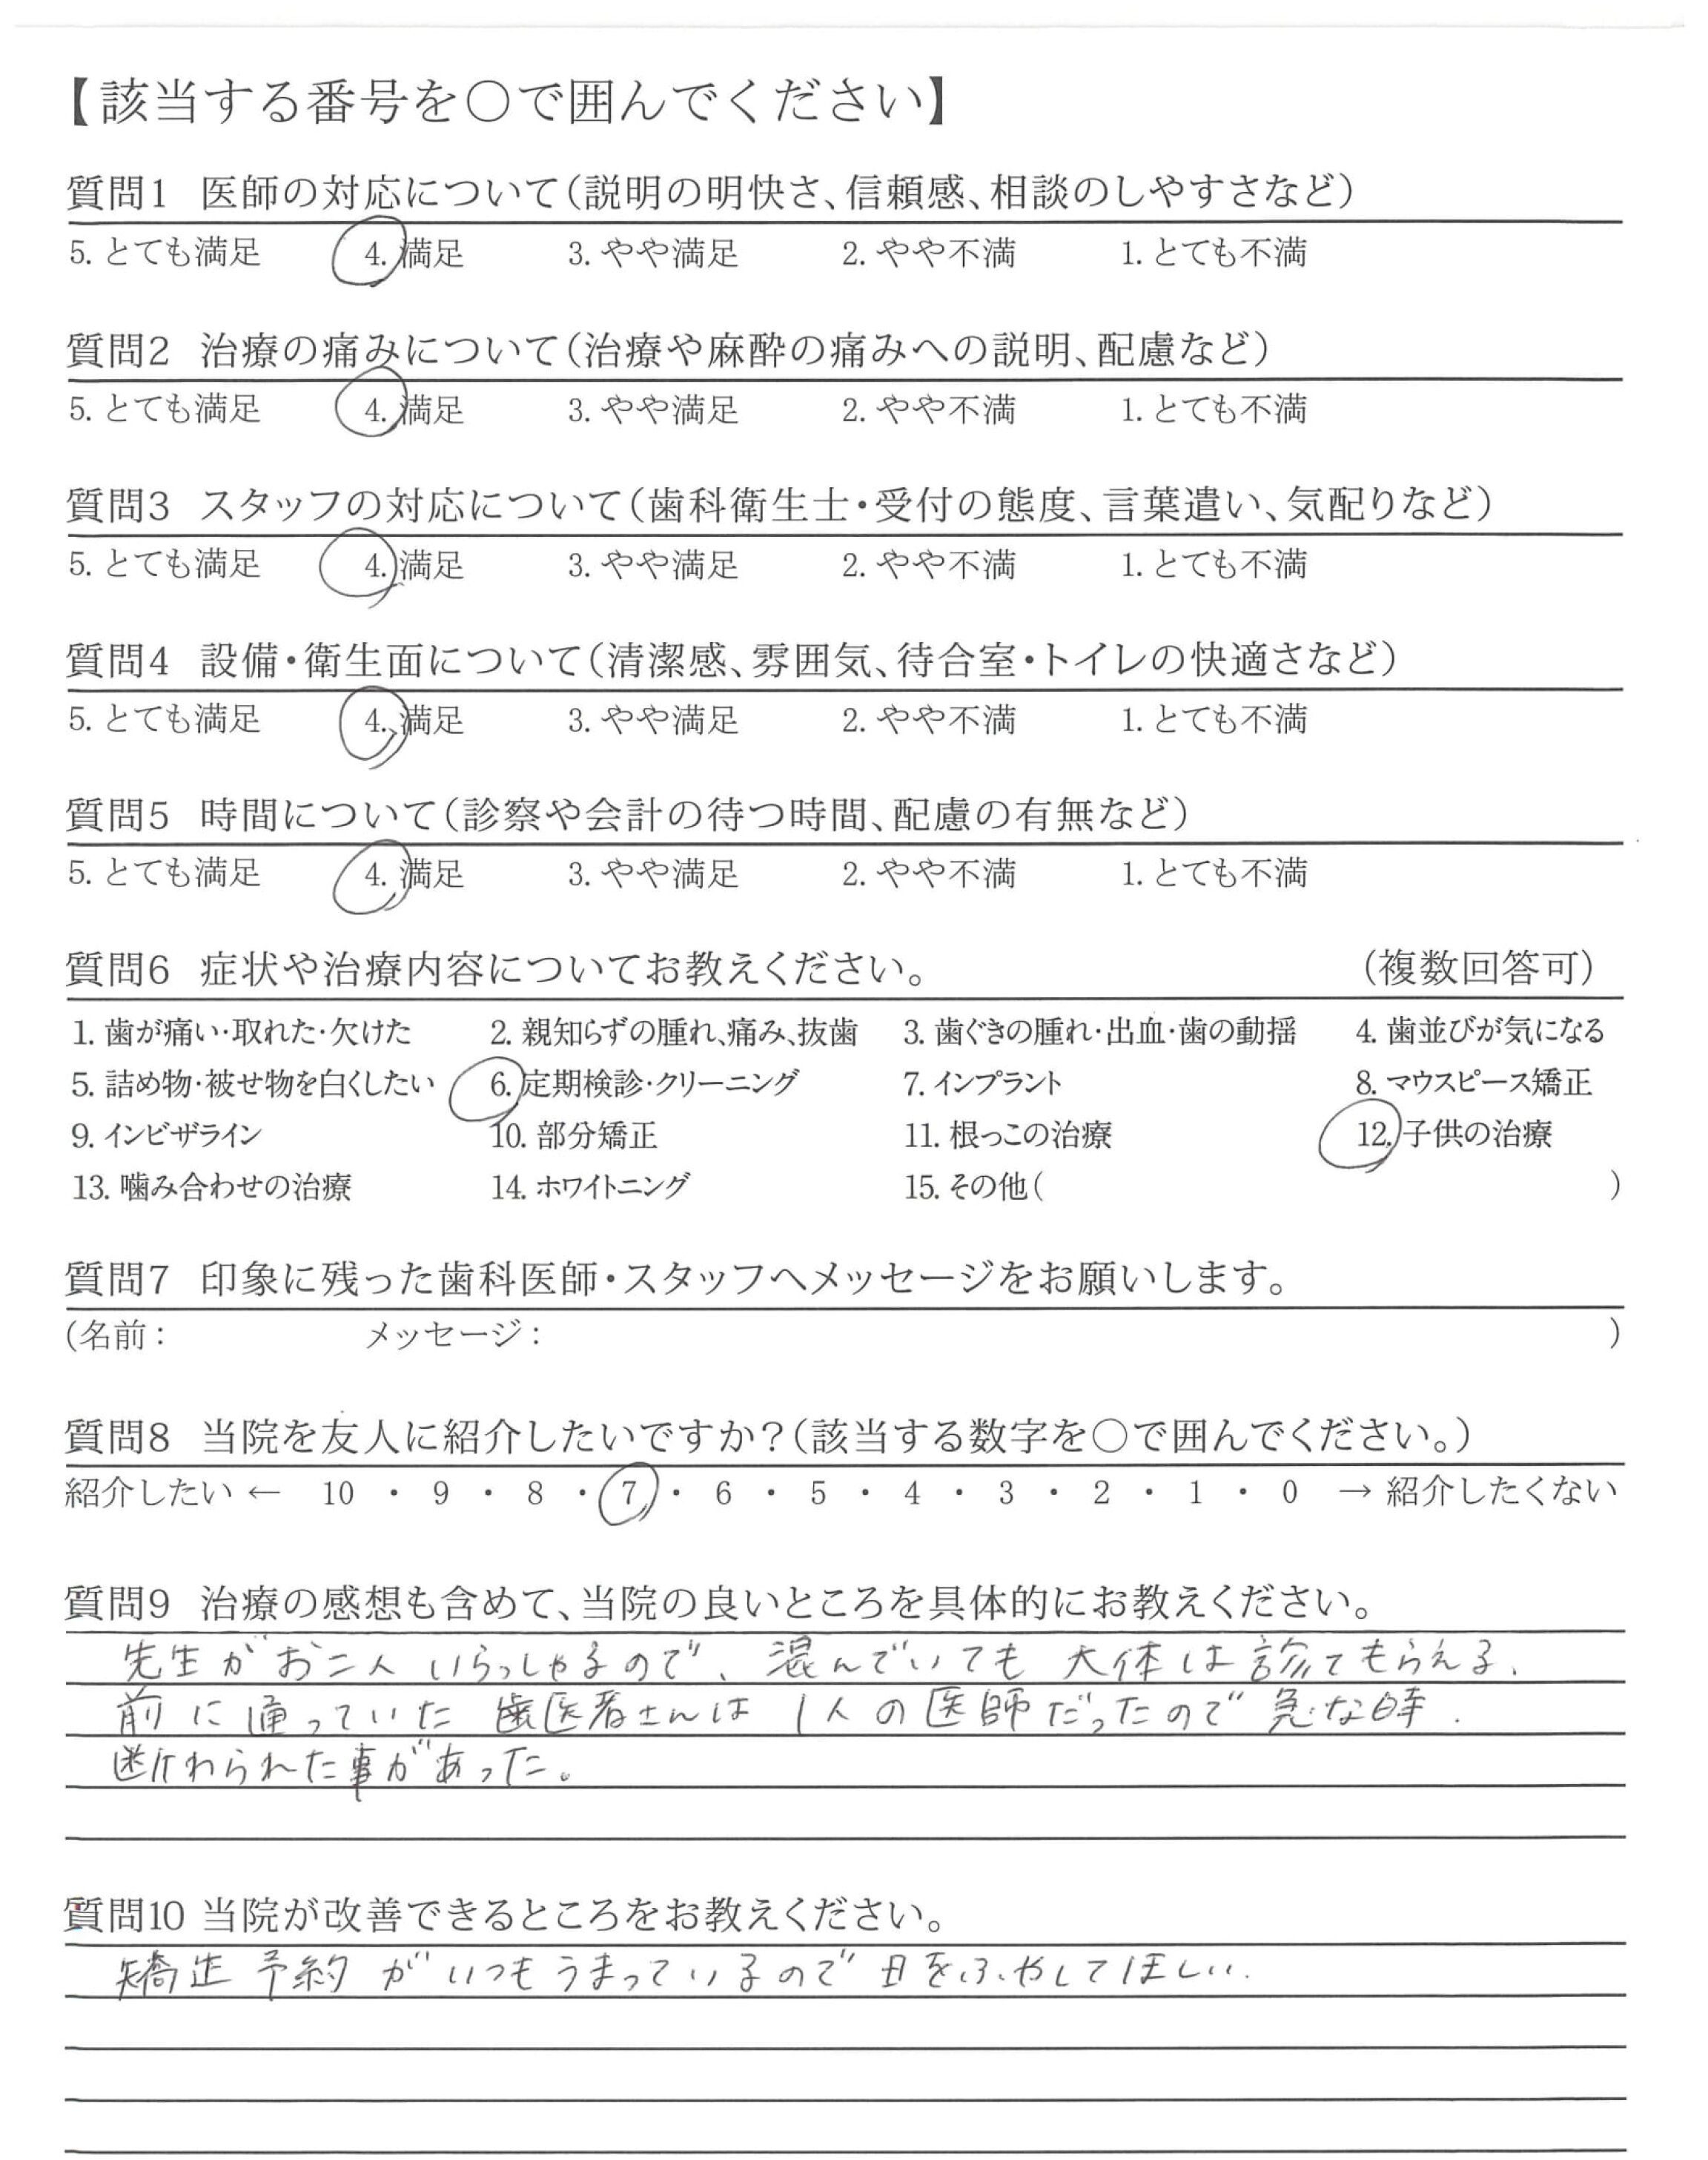 【該当する番号を〇で囲んでください】
質問1 医師の対応について(説明の明快さ、信頼感、相談のしやすさなど)
5. とても満足 4. 満足 3. やや満足 2. やや不満 1. とても不満
質問2 治療の痛みについて(治療や麻酔の痛みへの説明、配慮など)
5. とても満足 4. 満足 3. やや満足 2. やや不満 1. とても不満
質問3 スタッフの対応について(歯科衛生士・受付の態度、言葉遣い、気配りなど)
5. とても満足 4. 満足 3. やや満足 2. やや不満 1. とても不満
質問4 設備・衛生面について(清潔感、雰囲気、待合室・トイレの快適さなど)
5. とても満足 4. 満足 3. やや満足 2. やや不満 1. とても不満
質問5 時間について(診察や会計の待つ時間、配慮の有無など)
5. とても満足 4. 満足 3. やや満足 2. やや不満 1. とても不満
質問6 症状や治療内容についてお教えください。 (複数回答可)
1. 歯が痛い・取れた・欠けた 2. 親知らずの腫れ、痛み、抜歯 3. 歯ぐきの腫れ・出血・歯の動揺 4. 歯並びが気になる
5. 詰め物・被せ物を白くしたい 6. 定期検診・クリーニング 7. インプラント 8. マウスピース矯正
9. インビザライン 10. 部分矯正 11. 根っこの治療 12. 子供の治療
13. 噛み合わせの治療 14. ホワイトニング 15. その他( )
質問7 印象に残った歯科医師・スタッフへメッセージをお願いします。
(名前: メッセージ: )
質問8 当院を友人に紹介したいですか?(該当する数字を〇で囲んでください。)
紹介したい ← 10 ・ 9 ・ 8 ・ 7 ・ 6 ・ 5 ・ 4 ・ 3 ・ 2 ・ 1 ・ 0 → 紹介したくない
質問9 治療の感想も含めて、当院の良いところを具体的にお教えください。
先生がお二人いらっしゃるので、混んでいても大体は診てもらえる、
前に通っていた歯医者さんは1人の医師だったので急な時.
断わられた事があった。
質問10 当院が改善できるところをお教えください。
矯正予約がいつもうまっているので日をふやしてほしい.